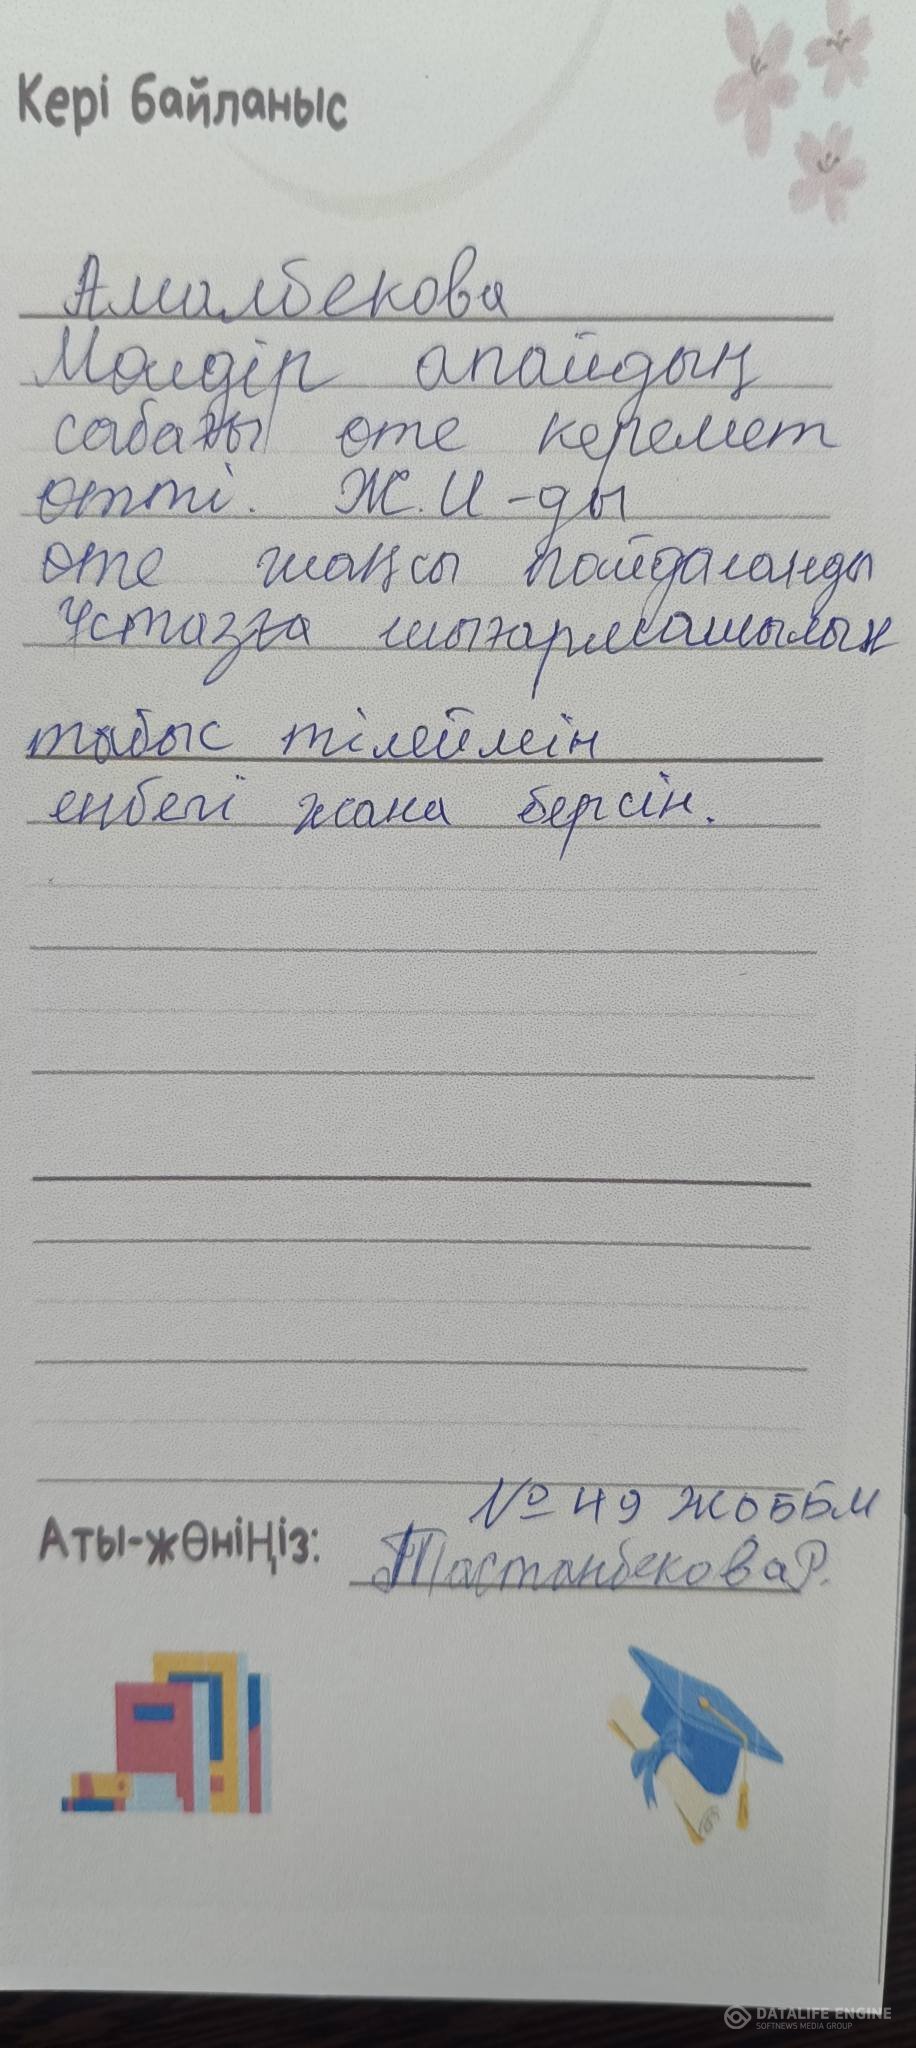 Кері байланыс
Амалбекова
Мөлдір апайдың
сабағы өте керемет
өтті. Ж.И-ды
өте жақсы пайдаланды
Ұстазға шығармашылық
табыс тілеймін
еңбегі жана берсін.
№ 49 ЖОББМ
Аты-жөніңіз: Тастанбекова Р.
DATALIFE ENGINE
SOFTNEWS MEDIA GROUP